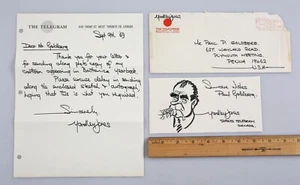 THE TELEGRAM
Sept 9th 69
Dear Mr Goldberg
Thank you for your letter &
for sending along photo copy of my
cartoon appearing in Britannica Yearbook.
Please excuse delay in sending
along the enclosed sketch & autograph
hoping that this is what you required.
Sincerely
Yardley Jones
Yardley Jones
THE TELEGRAM
Mr Paul D. Goldberg.
Plymouth Meeting.
Penna 19462
U.S.A.
Sincere Wishes
Paul Goldberg.
Yardley Jones
Toronto Telegram
Canada.